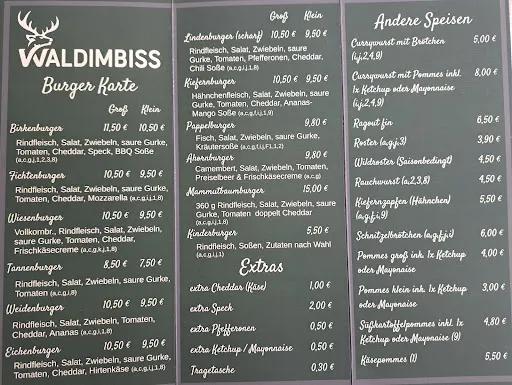 WALDIMBISS
Burger Karte
Groß Klein
Birkenburger 11,50 € 10,50 €
Rindfleisch, Salat, Zwiebeln, saure Gurke,
Tomaten, Cheddar, Speck, BBQ Soße
(a,c,g,j,1,2,3,8)
Fichtenburger 10,50 € 9,50 €
Rindfleisch, Salat, Zwiebeln, saure Gurke,
Tomaten, Cheddar, Mozzarella (a,c,g,i,j,1,8)
Wiesenburger 10,50 € 9,50 €
Vollkornbr., Rindfleisch, Salat, Zwiebeln,
saure Gurke, Tomaten, Cheddar,
Frischkäsecreme
Tannenburger 8,50 € 7,50 €
Rindfleisch, Salat, Zwiebeln, saure Gurke,
Tomaten (a,c,g,i,8)
Weidenburger 10,50 € 9,50 €
Rindfleisch, Salat, Zwiebeln, Tomaten,
Cheddar, Ananas (a,c,g,i,j,1,8)
Eichenburger 10,50 € 9,50 €
Rindfleisch, Salat, Zwiebeln, saure Gurke,
Tomaten, Cheddar, Hirtenkäse (a,c,g,i,j,1,8)
Groß Klein
Lindenburger (scharf) 10,50 € 9,50 €
Rindfleisch, Salat, Zwiebeln, saure
Gurke, Tomaten, Pfefferonen, Cheddar,
Chili Soße (a,c,g,i,j,1,8)
Kiefernburger 10,50 € 9,50 €
Hähnchenfleisch, Salat, Zwiebeln, saure
Gurke, Tomaten, Cheddar, Ananas-
Mango Soße
Pappelburger 9,80 €
Fisch, Salat, Zwiebeln, saure Gurke,
Kräutersoße
Ahornburger 9,80 €
Camembert, Salat, Zwiebeln, Tomaten,
Preiselbeer & Frischkäsecreme (a,c,g)
Mammutbaumburger 15,00 €
360 g Rindfleisch, Salat, Zwiebeln, saure
Gurke, Tomaten doppelt Cheddar
(a,c,g,i,j,1,8)
Kinderburger 5,50 €
Rindfleisch, Soßen, Zutaten nach Wahl
(a,c,g,i,j,1)
Extras
extra Cheddar (Käse) 1,00 €
extra Speck 2,00 €
extra Pfefferonen 0,50 €
extra Ketchup / Mayonnaise 0,50 €
Tragetasche 0,30 €
Andere Speisen
Currywurst mit Brötchen 5,00 €
(i,j,2,4,9)
Currywurst mit Pommes inkl. 8,00 €
1x Ketchup oder Mayonnaise
(i,j,2,4,9)
Ragout fin 6,50 €
Roster (a,g,j,3) 3,90 €
Wildroster (Saisonbedingt) 4,50 €
Rauchwurst (a,2,3,8) 4,50 €
Kiefernzapfen (Hähnchen) 5,50 €
(a,g,f,i,9)
Schnitzelbrötchen (a,g,f,j,i) 6,00 €
Pommes groß ink. 1x Ketchup 4,00 €
oder Mayonaise
Pommes klein ink. 1x Ketchup 3,00 €
oder Mayonaise
Süßkartoffelpommes inkl. 1x 4,80 €
Ketchup oder Mayonaise (9)
Käsepommes (1) 5,50 €